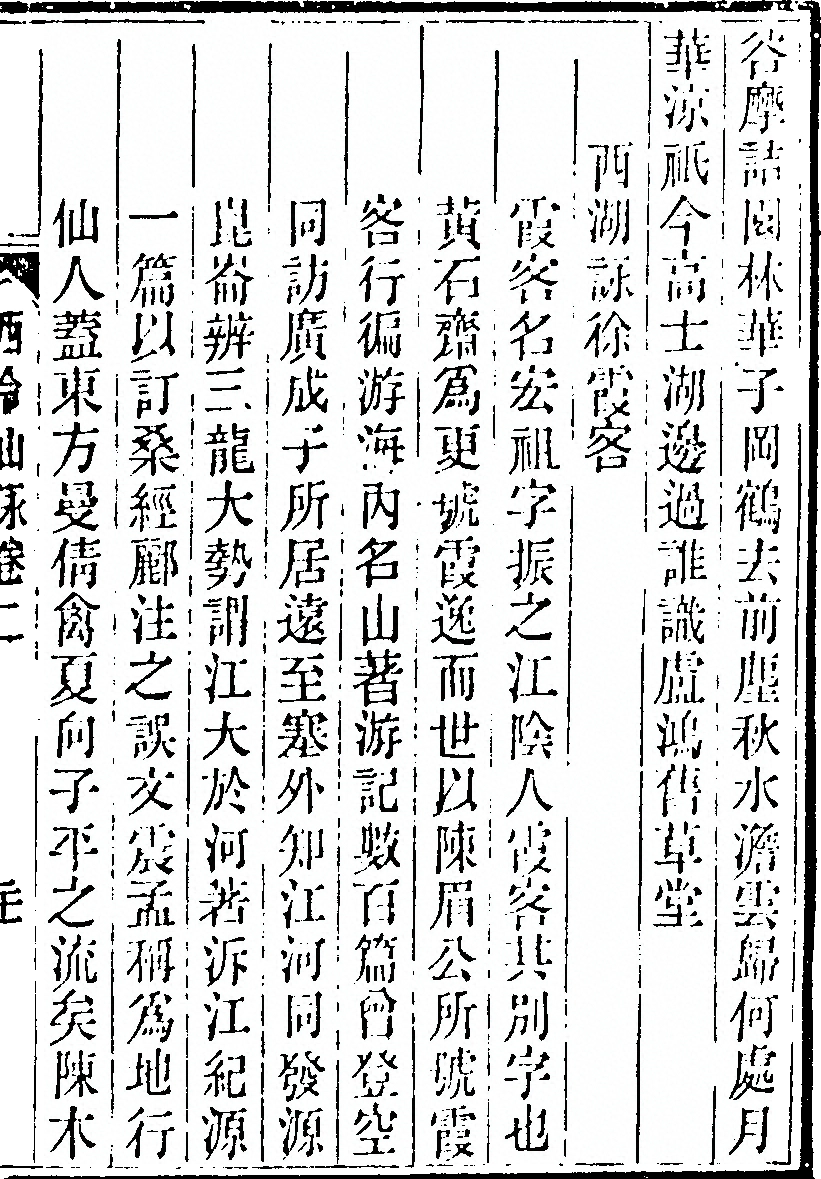 谷摩詰園林華子岡鶴去前塵秋水澹雲歸何處月
華凉祇今高士湖邊過誰識盧鴻舊草堂
西湖詠徐霞客
霞客名宏祖字振之江陰人霞客其別字也
黃石齋爲更號霞逸而世以陳眉公所號霞
客行徧游海內名山著游記數百篇曾登空
同訪廣成子所居遠至塞外知江河同發源
崑崙辨三龍大勢謂江大於河著泝江紀源
一篇以訂桑經酈注之誤文震孟稱爲地行
仙人蓋東方曼倩禽夏向子平之流矣陳木
西泠仙詠卷二